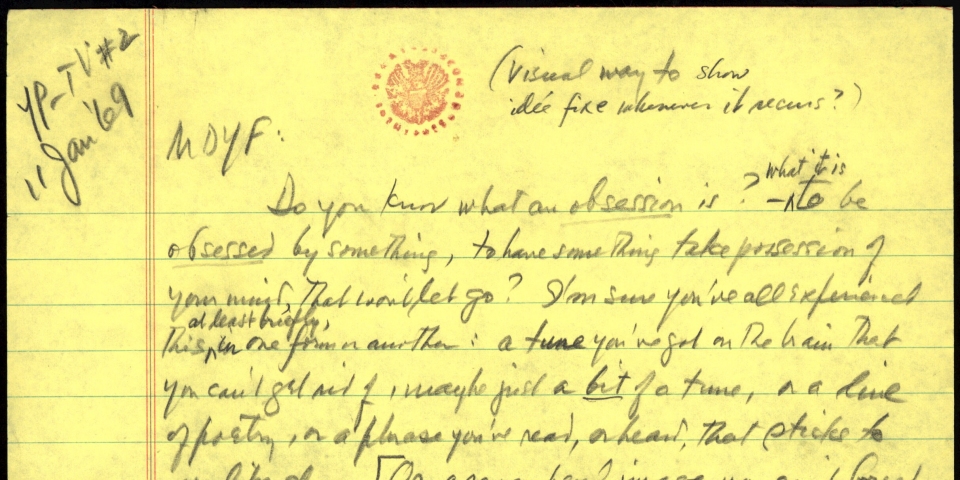 YP-TV #2
11 Jan '69
(Visual way to show
idée fixe whenever it recurs?)
MDYF:
Do you know what an obsession is? — what it is to be
obsessed by something, to have something take possession of
your mind, that won't let go? I'm sure you've all experienced
this, at least briefly, in one form or another: a tune you've got on the brain that
you can't get rid of, maybe just a bit of a tune, or a line
of poetry, or a phrase you've read, or heard, that sticks to